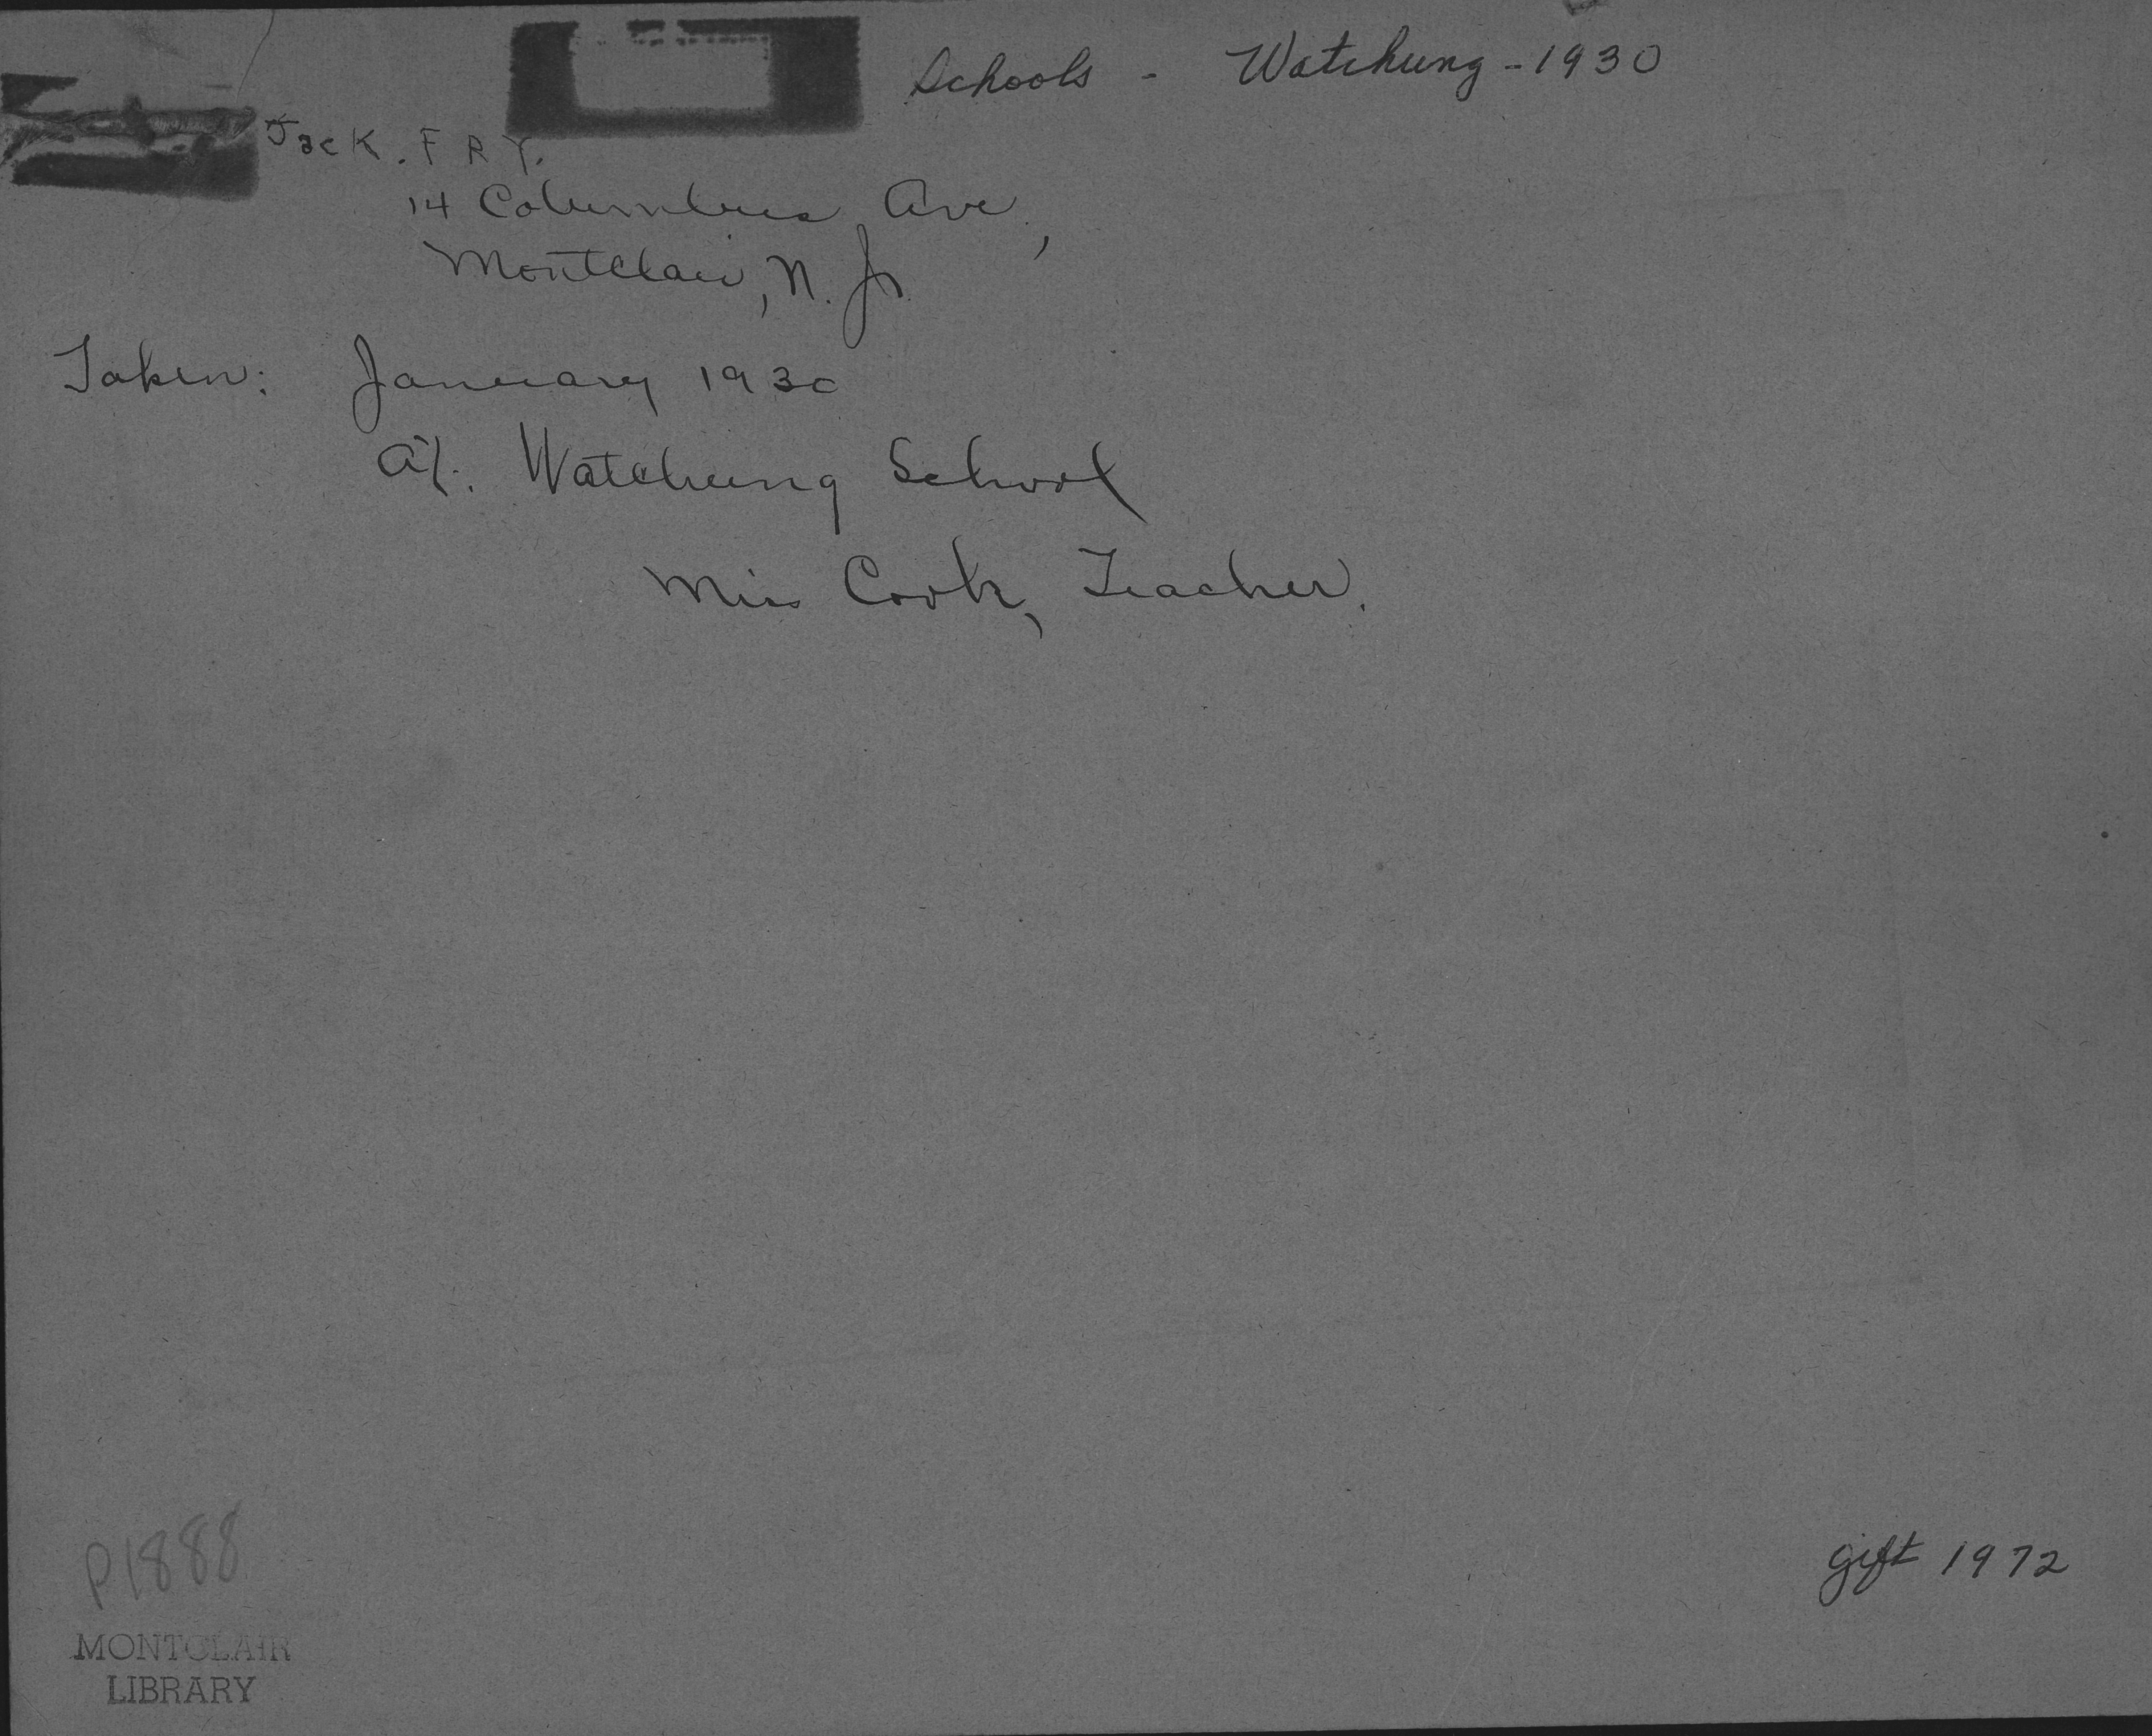 Schools - Watchung - 1930
Jack. FRY.
14 Columbus Ave.,
Montclair, N. J.
Taken: January 1930
At. Watchung School
Miss Cook, Teacher.
P1888
gift 1972
MONTCLAIR
LIBRARY